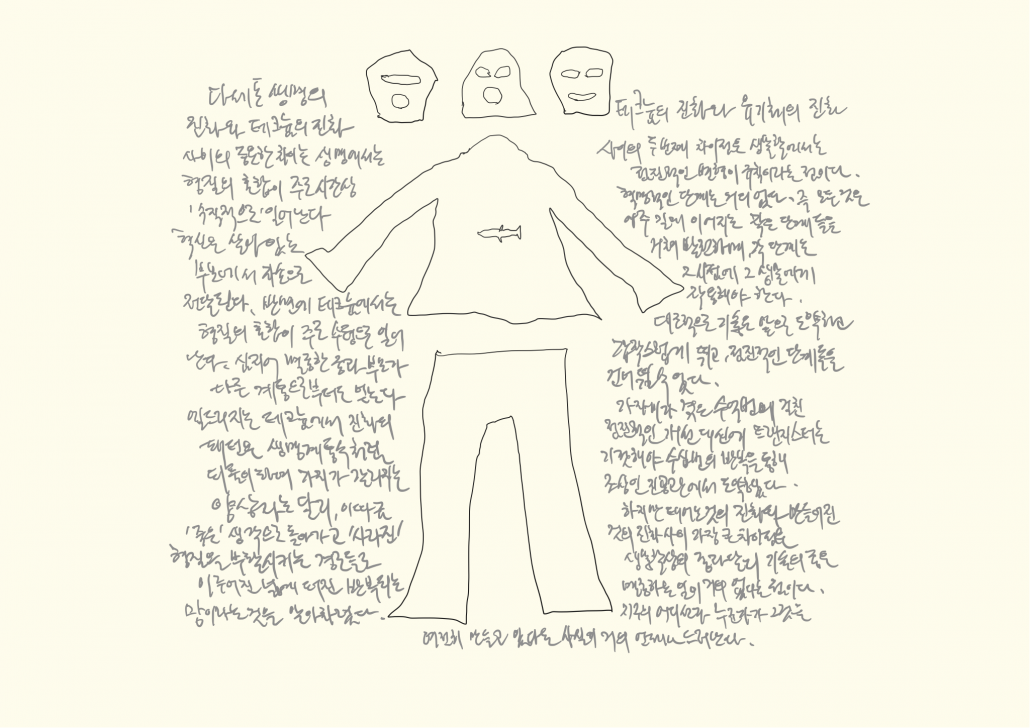 다세포 생명의
진화와 테크늄의 진화
사이의 중요한 차이는 생명에서는
형질의 혼합이 주로 시간상
'수직적으로' 일어난다
혁신은 살아 있는
부모에게서 자손으로
전달된다. 반면에 테크늄에서는
형질의 혼합이 주로 수평으로 일어
난다. 심지어 멸종한 종과 부모가
다른 계통으로부터도 얻는다
엘드리지는 테크늄에서 진화의
패턴은 생명계통수처럼
되풀이하여 가지가 갈라지는
양상이라는 달리, 이따금
'죽은' 생각으로 돌아가고 '사라진'
형질을 부활시키는 경로들로
이루어진 넓게 퍼진 반복되는
망이라는 것을 알아차렸다.
테크늄의 진화와 유기체의 진화
사이의 두 번째 차이점은 생물학에서는
점진적인 변형이 규칙이라는 점이다.
혁명적인 단계는 거의 없다. 즉 모든 것은
아주 길게 이어지는 작은 단계들을
거쳐 발전하며, 각 단계는
그 시점에 그 생물에게
작용해야 한다.
대조적으로 기술은 앞으로 도약하고
갑작스럽게 뛰고, 점진적인 단계들을
건너뛸 수 있다.
점진적인 개선 대신에 트랜지스터는
기껏해야 수십 번의 반복을 통해
조상인 진공관에서 도약했다.
하지만 태어난 것의 진화와 만들어진
것의 진화 사이의 가장 큰 차이점은
생물학상의 종과 달리 기술의 종은
멸종하는 일이 거의 없다는 점이다.
지구의 어디선가 누군가가 그것을
여전히 만들고 있다는 사실이 거의 언제나 드러난다.